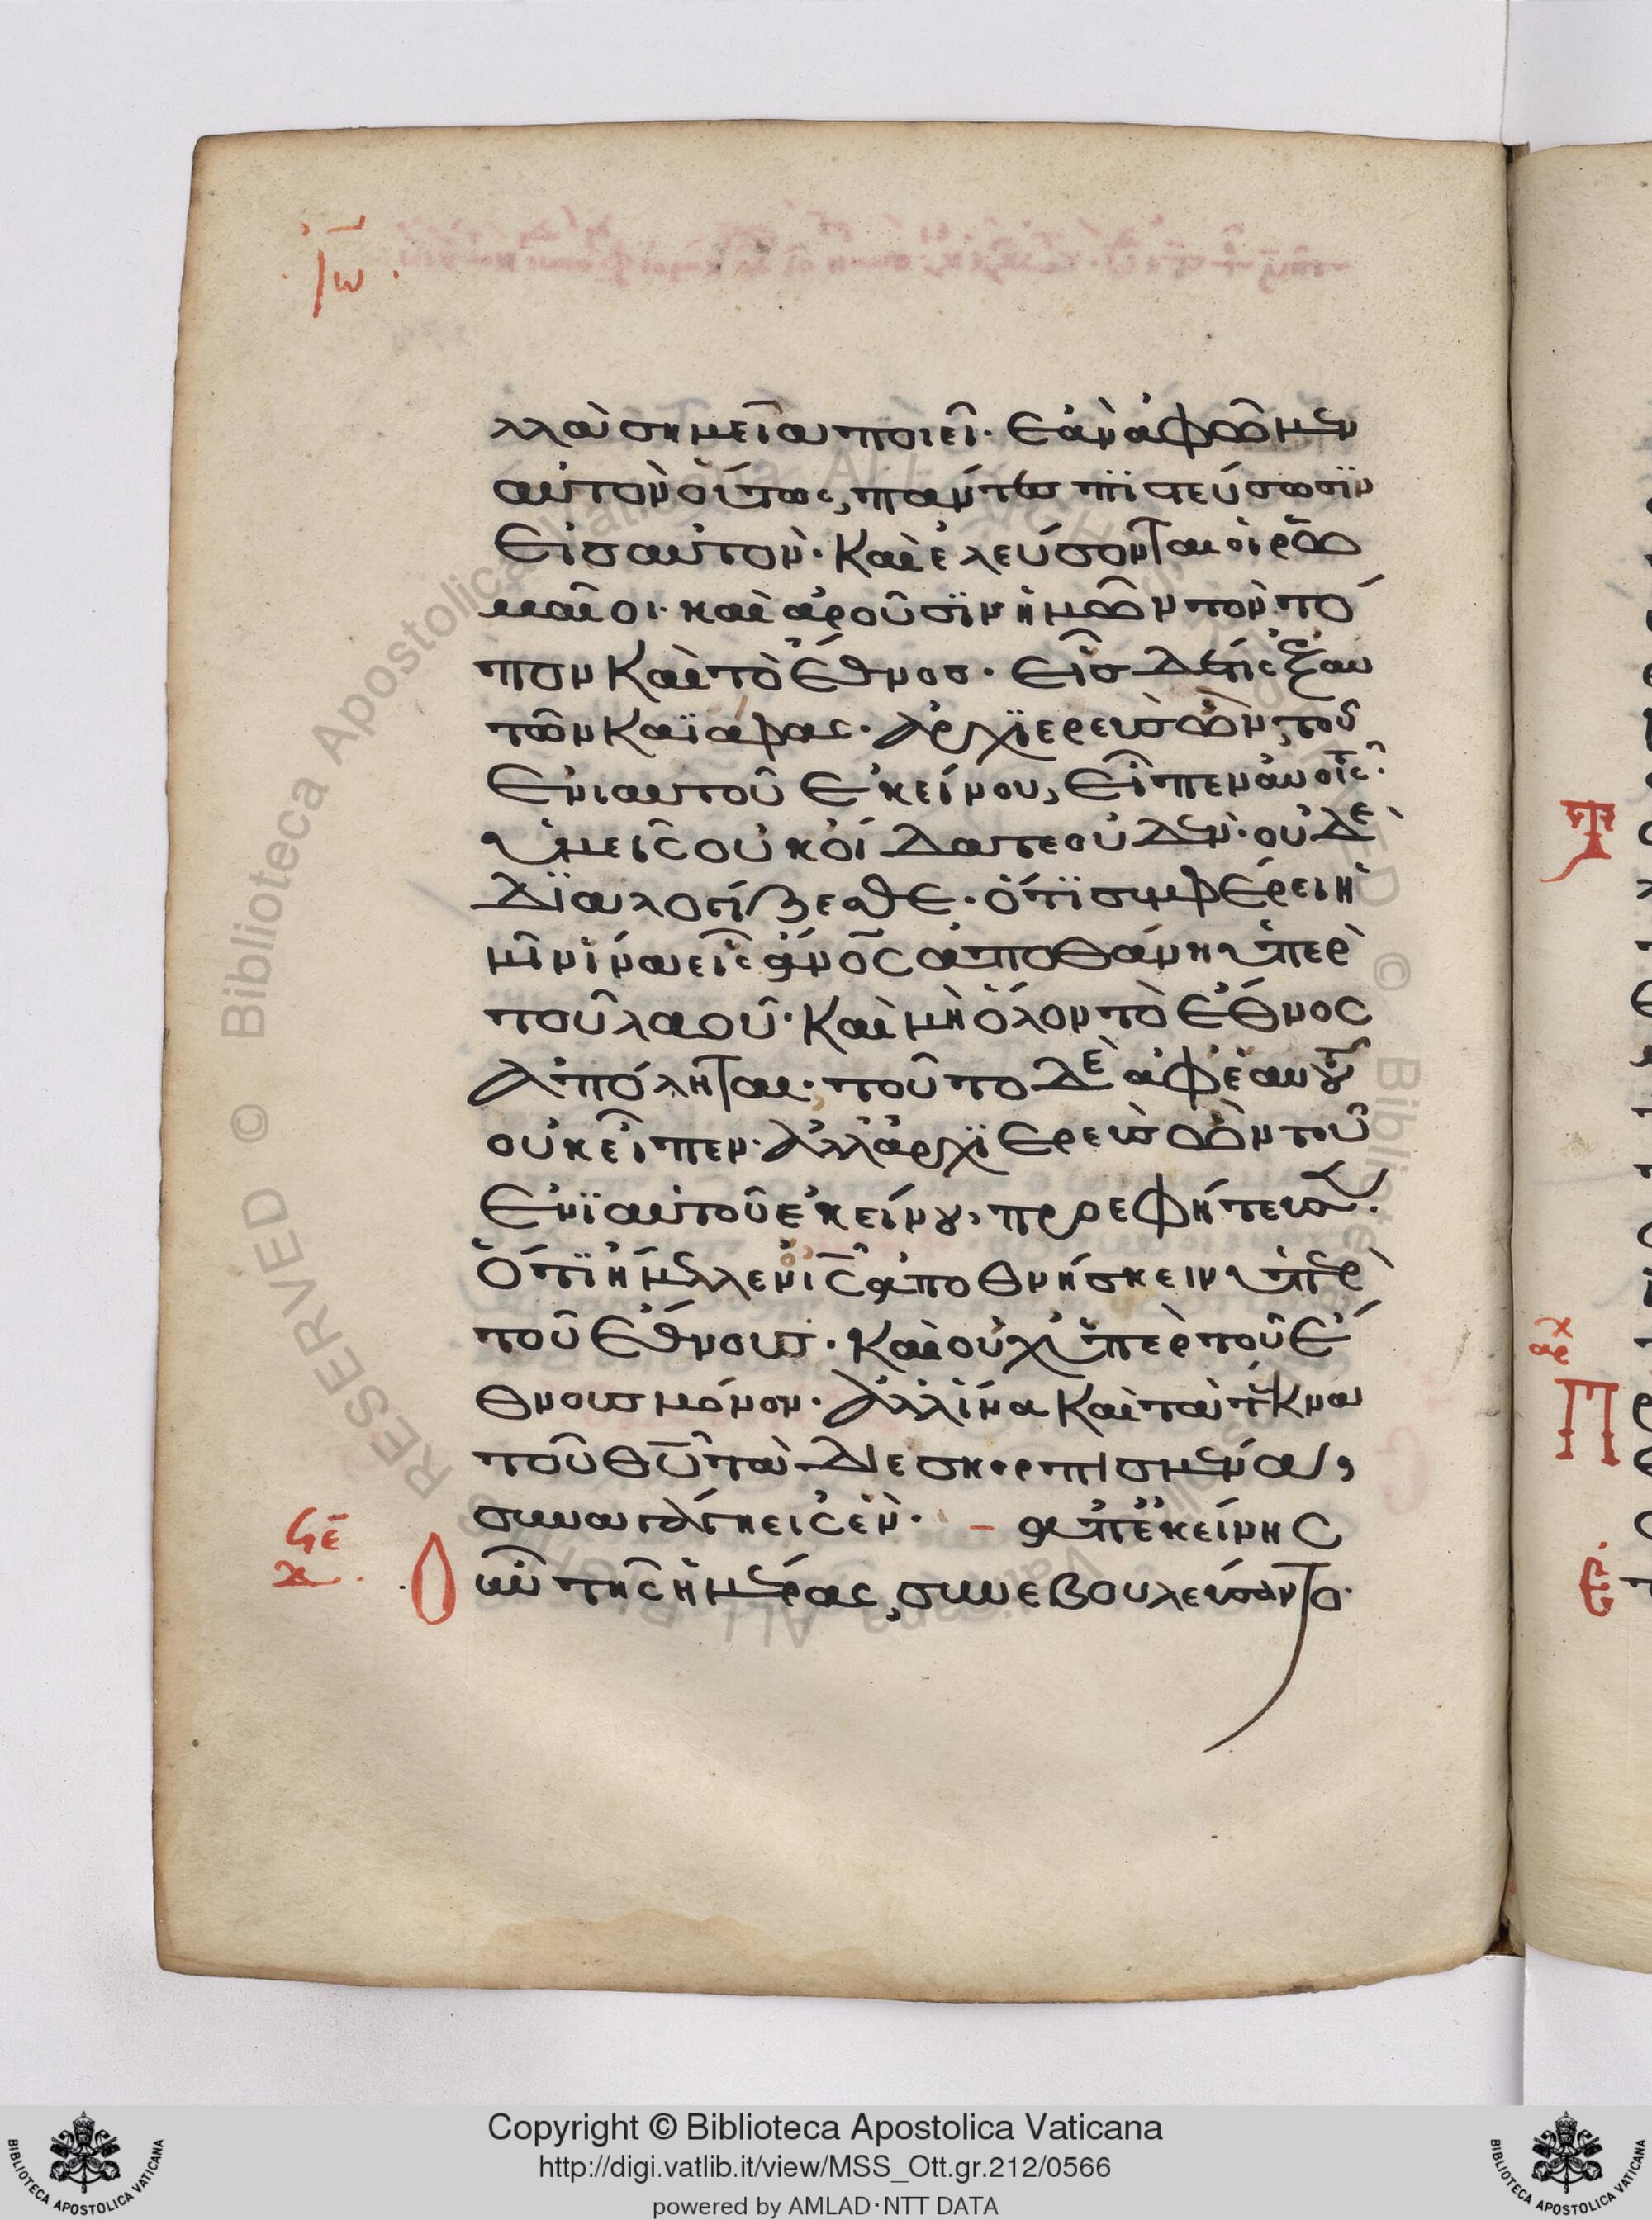 Ἰω
λλὰ σημεῖα ποιεῖ· ἐὰν ἀφῶμεν
αὐτὸν οὕτως, πάντες πϊστεύσωσϊν
εἰς αὐτὸν· καὶ ἐλεύσονται οἱ ρω
μαῖοι· καὶ ἀροῦσϊν ἡμῶν τὸν τό
πον καὶ τὸ ἔθνος· εἷς δέ τις ἐξ αυ
τῶν καϊάφας· ἀρχϊερεὺς ὢν, τοῦ
ἐνιαυτοῦ ἐκείνου, εἶπεν αὐτοῖς·
ὑμεῖς οὐκ οἴδατε οὐδὲν· οὐδὲ
δϊαλογίζεσθε· ὅτϊ συμφέρει ἡ
μῖν ἵνα εἷς ἄνος ἀποθάνη ὑπὲρ
τοῦ λαοῦ· καὶ μὴ ὅλον τὸ ἔθνος
ἀπόληται· τοῦτο δὲ ἀφ' ἑαυτοῦ
οὐκ εἶπεν· ἀλλὰ ἀρχϊερεὺς ὢν τοῦ
ἐνϊαυτοῦ ἐκείνου, προεφήτευσεν·
ὅτϊ ἤμελλεν ὁ ις ἀποθνήσκειν ὑπὲρ
τοῦ ἔθνους· καὶ οὐχ ὑπὲρ τοῦ ἔ
θνους μόνον· ἀλλ' ἵνα καὶ τὰ τέκνα
τοῦ θυ τὰ διεσκορπισμένα,
συναγάγη εἰς ἕν· – ἀπ' ἐκείνης
οὖν τῆς ἡμέρας, συνεβουλεύσαντο·
Τ
Π
Copyright © Biblioteca Apostolica Vaticana
http://digi.vatlib.it/view/MSS_Ott.gr.212/0566
powered by AMLAD·NTT DATA
BIBLIOTECA APOSTOLICA VATICANA
BIBLIOTECA APOSTOLICA VATICANA